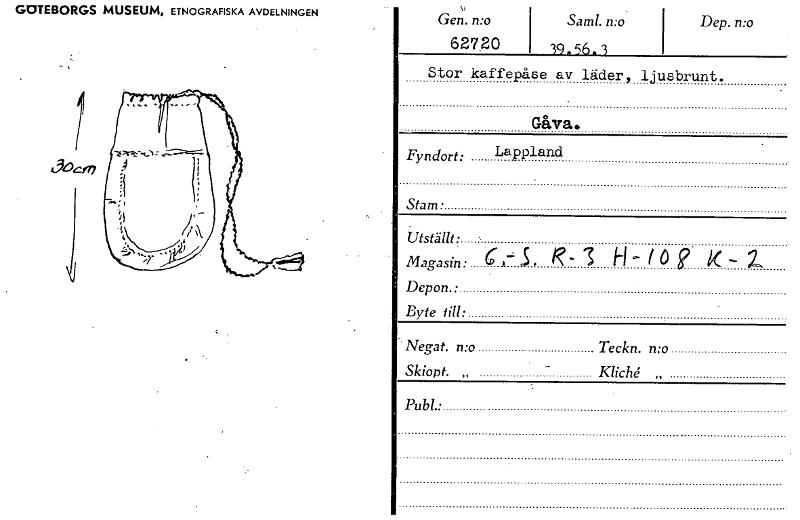 GÖTEBORGS MUSEUM, ETNOGRAFISKA AVDELNINGEN
30cm
Gen. n:o Saml. n:o Dep. n:o
62720 39.56.3
Stor kaffepåse av läder, ljusbrunt.
Gåva.
Fyndort: Lappland
Stam:
Utställt:
Magasin: G,-S. R-3 H-108 K-2
Depon.:
Byte till:
Negat. n:o Teckn. n:o
Skiopt. „ Kliché „
Publ.: